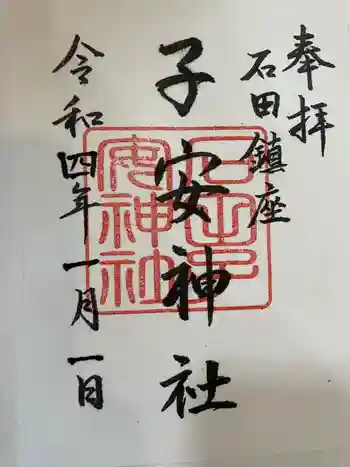 奉拝
石田鎮座
子安神社
令和四年一月一日
石田子
安神社